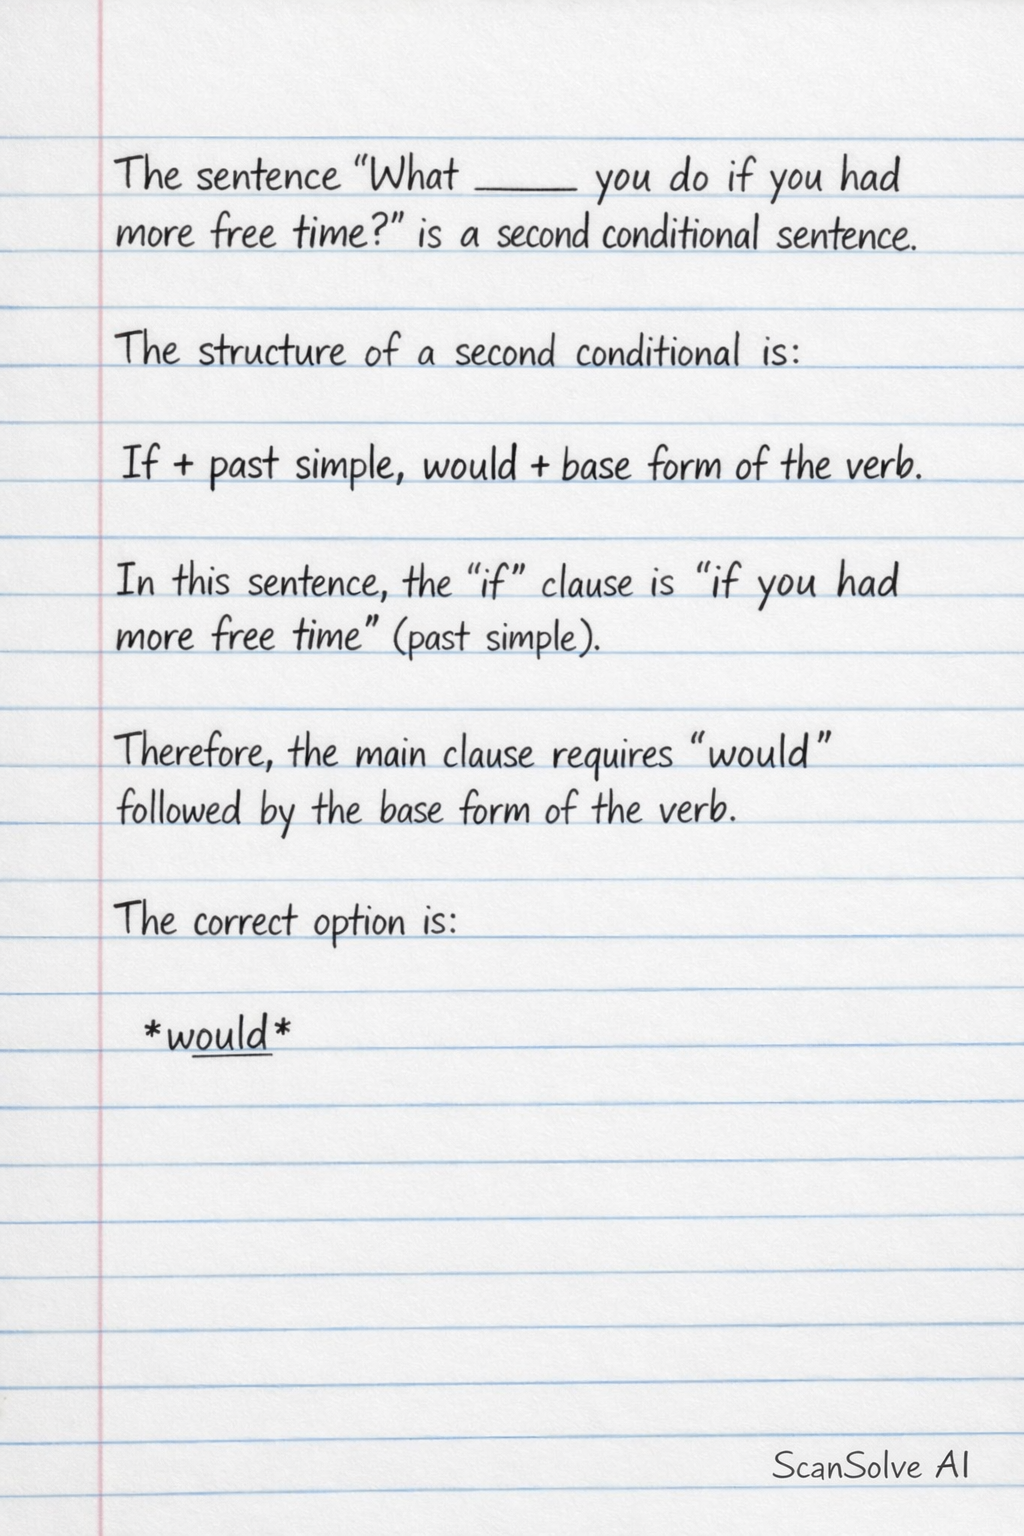 The sentence “What _____ you do if you had
more free time?” is a second conditional sentence.
The structure of a second conditional is:
If + past simple, would + base form of the verb.
In this sentence, the “if” clause is “if you had
more free time” (past simple).
Therefore, the main clause requires “would”
followed by the base form of the verb.
The correct option is:
*would*
ScanSolve AI